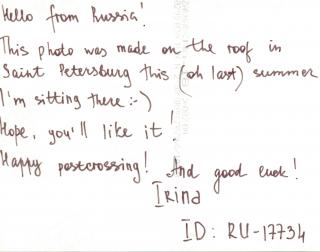 Hello from Russia!
This photo was made on the roof in
Saint Petersburg this (oh last) summer
I'm sitting there :-)
Hope, you'll like it!
Happy postcrossing! And good luck!
Irina
ID: RU-17734